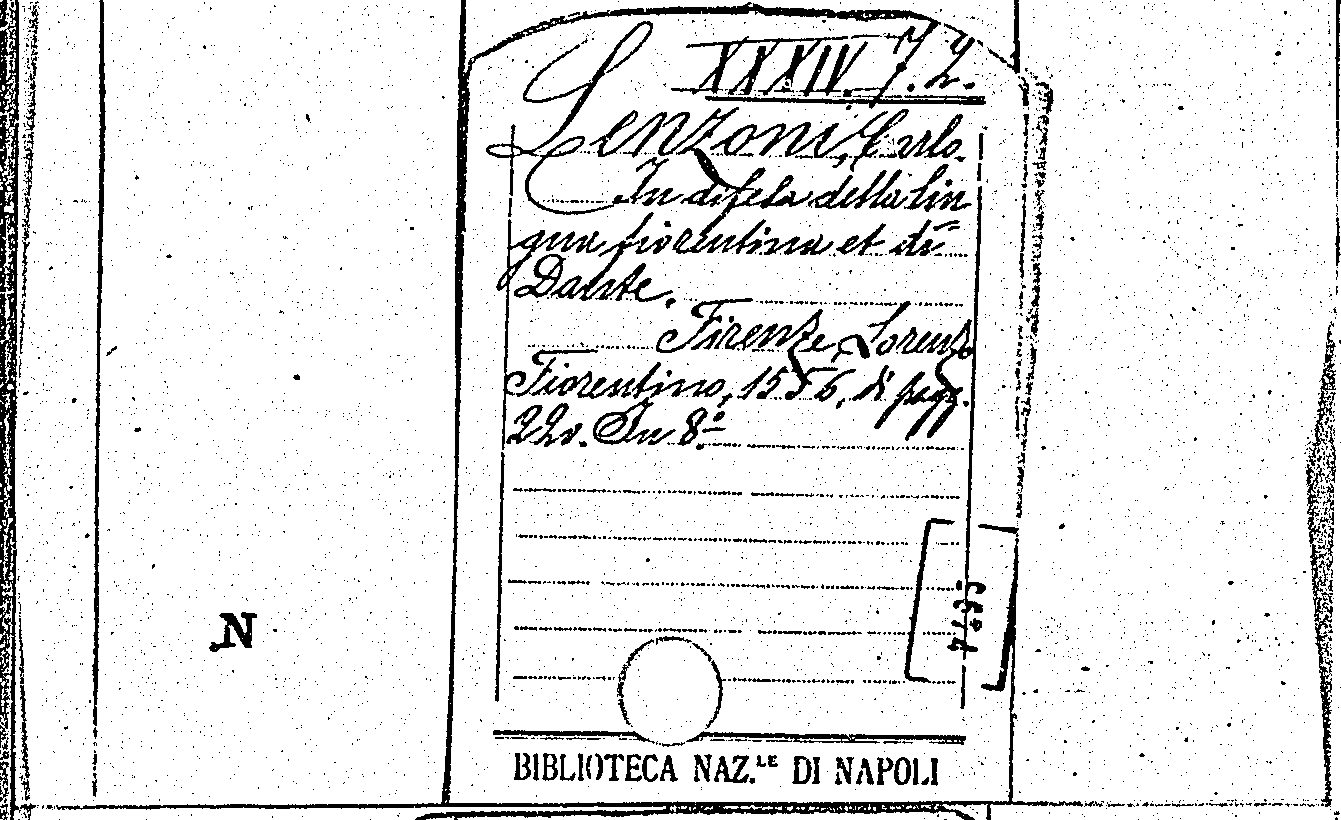 XXXIV. 7. 2.
Lenzoni, Carlo.
In difesa della lin
gua fiorentina et di
Dante.
Firenze, Lorenzo
Fiorentino, 1556, di pagg.
220. In 8º
N
BIBLIOTECA NAZ.LE DI NAPOLI